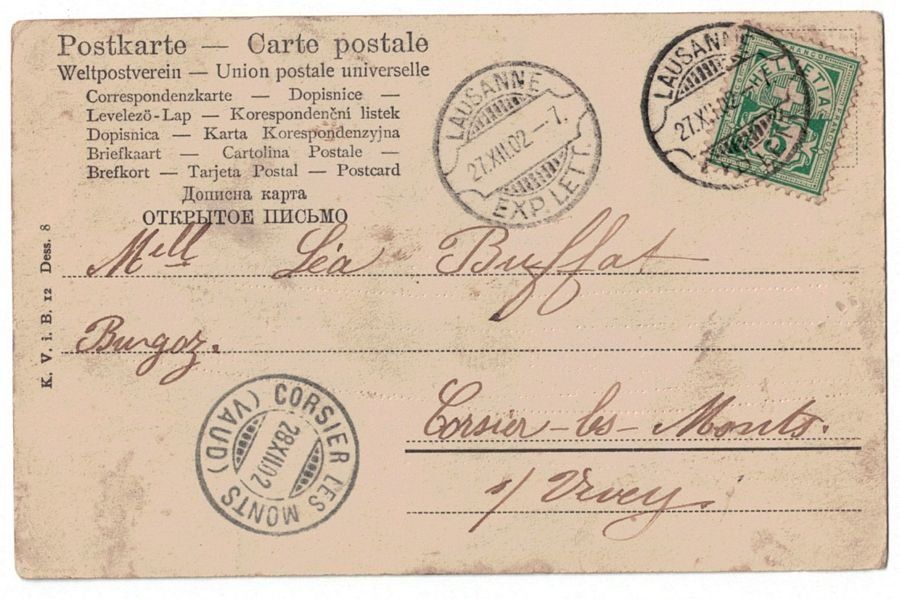 Postkarte — Carte postale
Weltpostverein — Union postale universelle
Correspondenzkarte — Dopisnice —
Levelező-Lap — Korespondenční listek
Dopisnica — Karta Korespondenzyjna
Briefkaart — Cartolina Postale —
Brefkort — Tarjeta Postal — Postcard
Дописна карта
ОТКРЫТОЕ ПИСЬМО
LAUSANNE
27.XII.02 — 7.
EXP. LET.
LAUSANNE
27.XII.02
FRANCO
HELVETIA
5
Mlle Léa Buffat
Burgoz.
Corsier-les-Monts.
s/ Vevey.
CORSIER LES MONTS
28.XII.02
(VAUD)
K. V. i. B. 12 Dess. 8